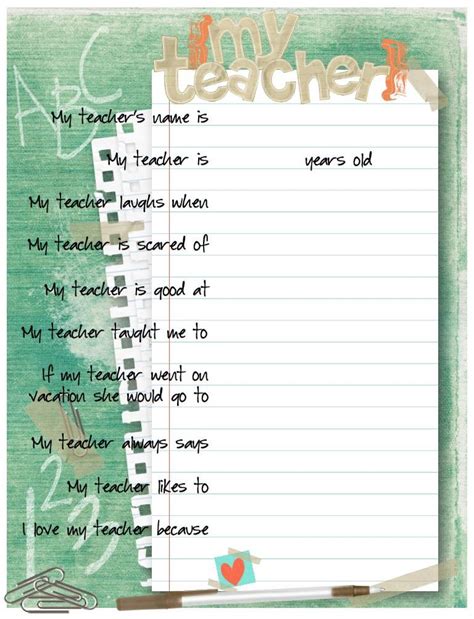 my
teacher
ABC
My teacher's name is
My teacher is years old
My teacher laughs when
My teacher is scared of
My teacher is good at
My teacher taught me to
If my teacher went on
vacation she would go to
My teacher always says
My teacher likes to
I love my teacher because
123